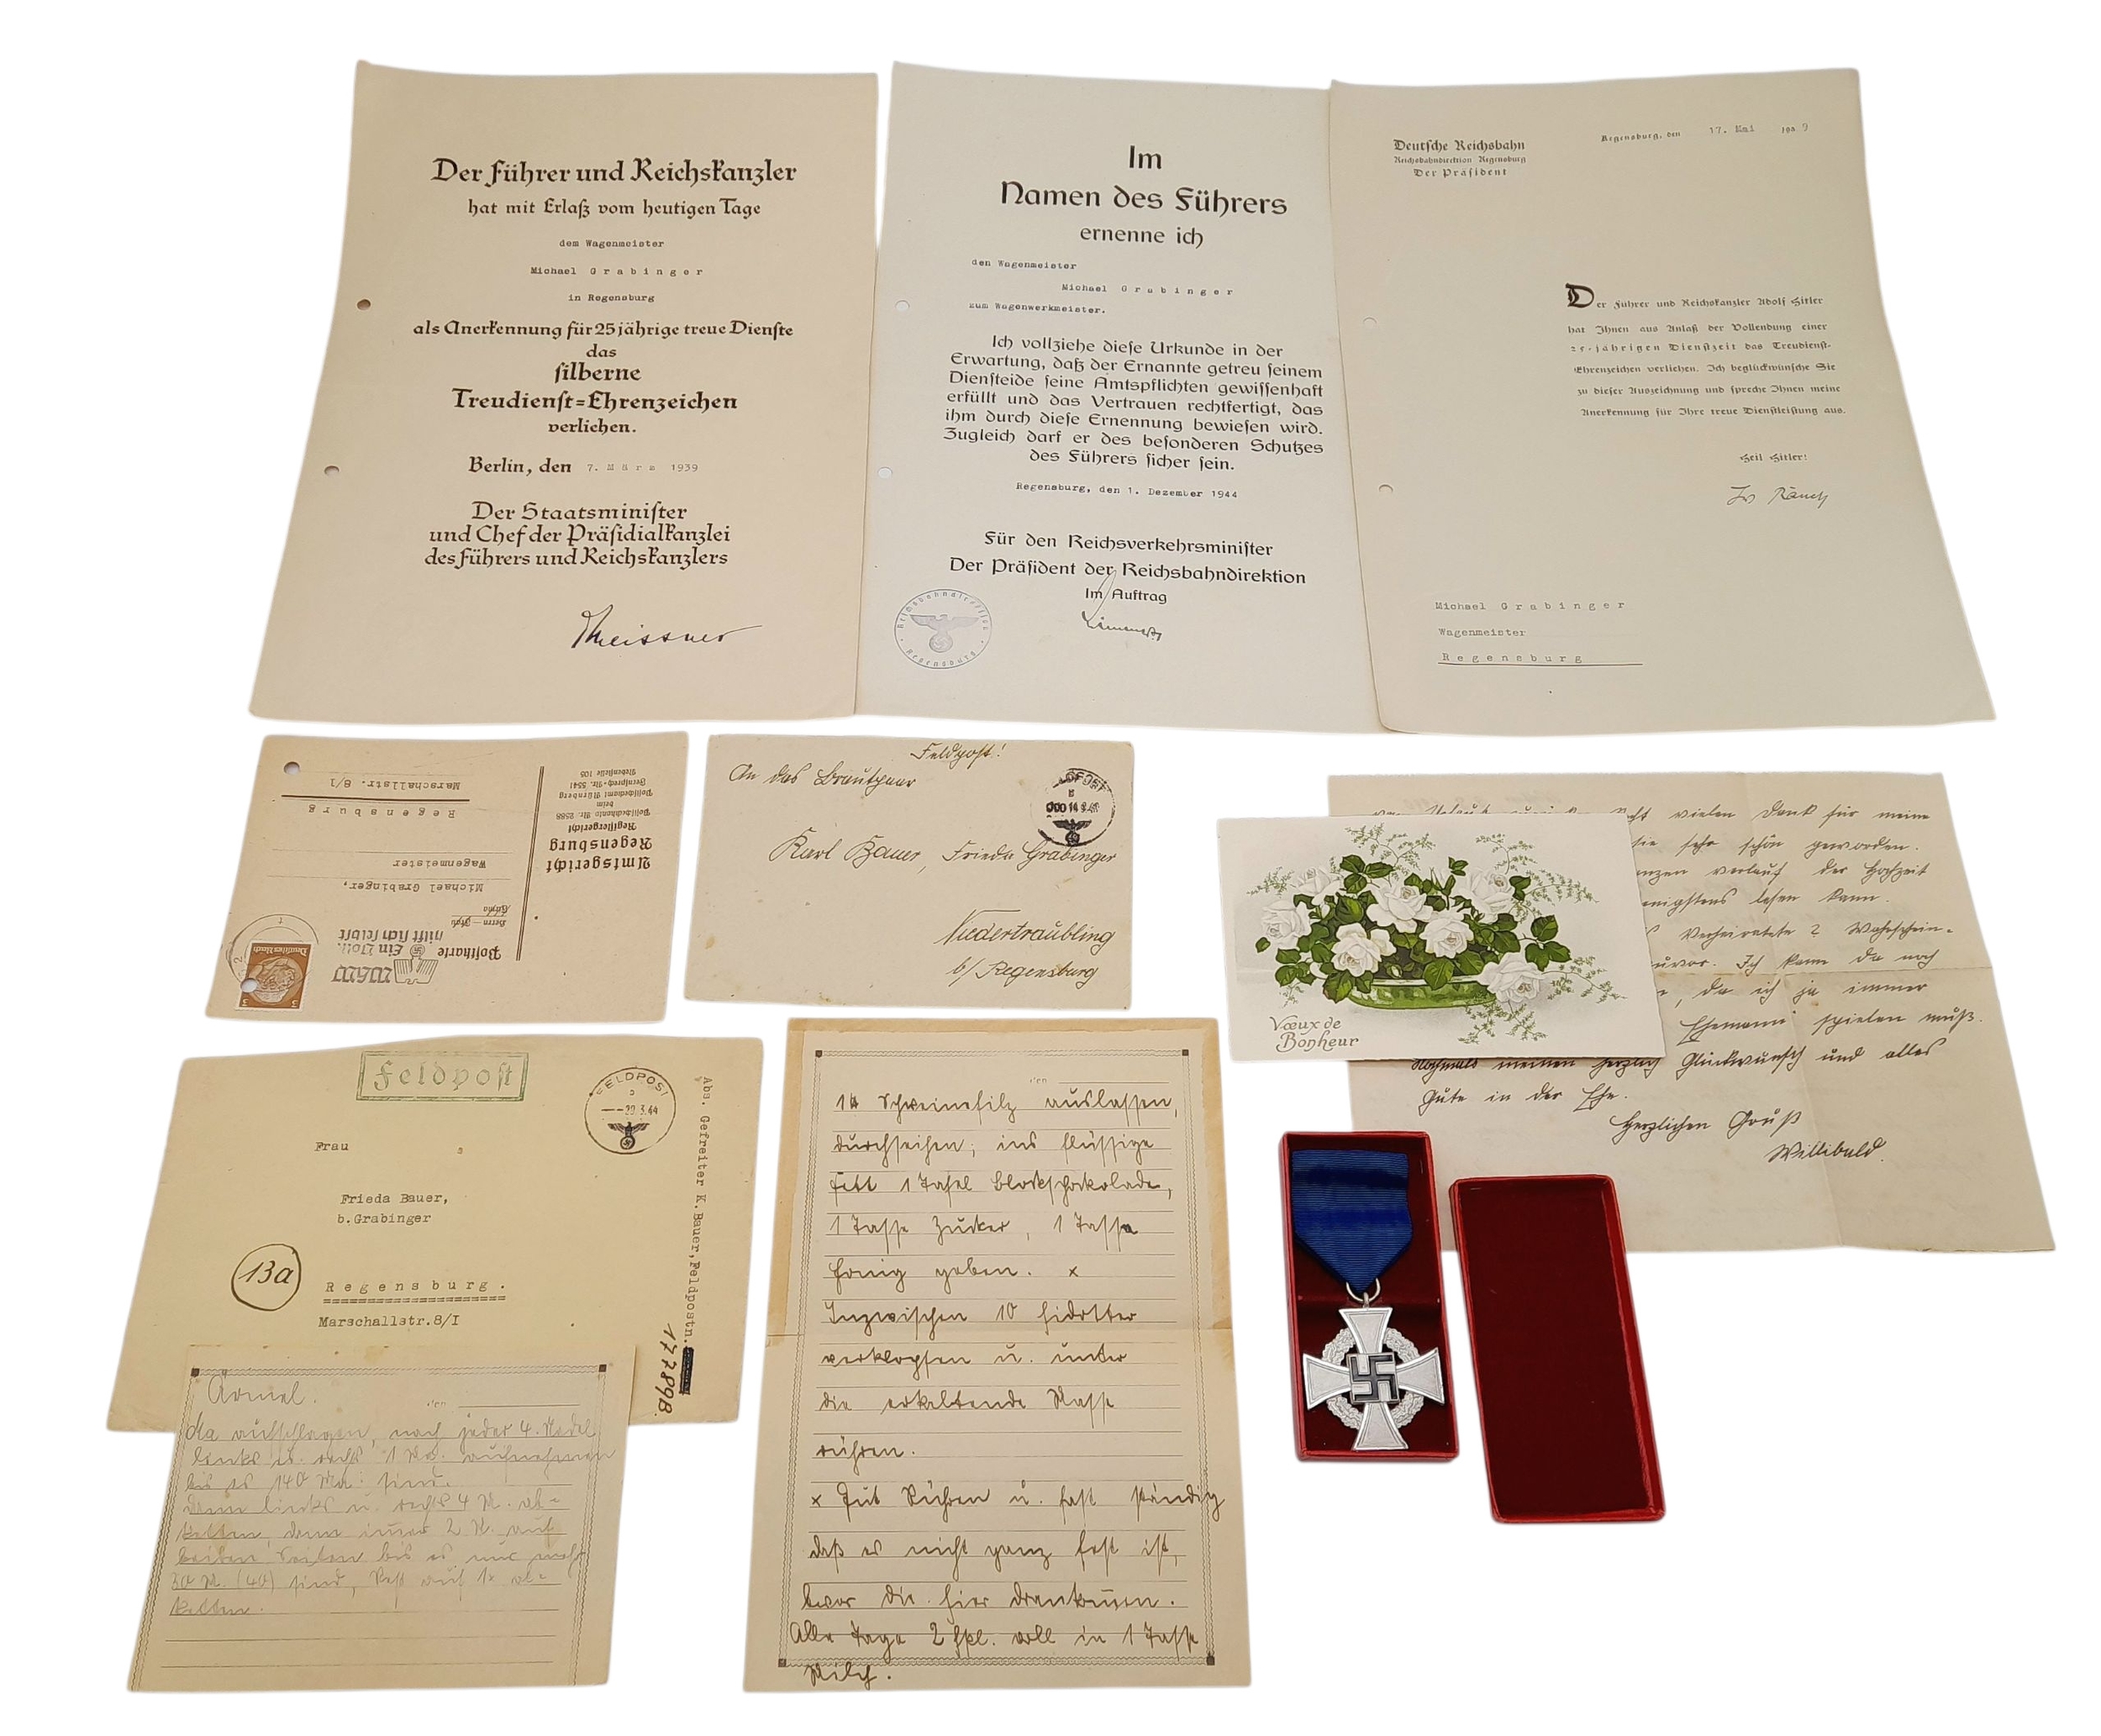 Der Führer und Reichskanzler
hat mit Erlaß vom heutigen Tage
dem Wagenmeister
Michael Grabinger
in Regensburg
als Anerkennung für 25jährige treue Dienste
das
silberne
Treudienst=Ehrenzeichen
verliehen.
Berlin, den 7. März 1939
Der Staatsminister
und Chef der Präsidialkanzlei
des Führers und Reichskanzlers
Meissner
Im
Namen des Führers
ernenne ich
den Wagenmeister
Michael Grabinger
zum Wagenwerkmeister.
Ich vollziehe diese Urkunde in der
Erwartung, daß der Ernannte getreu seinem
Diensteide seine Amtspflichten gewissenhaft
erfüllt und das Vertrauen rechtfertigt, das
ihm durch diese Ernennung bewiesen wird.
Zugleich darf er des besonderen Schutzes
des Führers sicher sein.
Regensburg, den 1. Dezember 1944
Für den Reichsverkehrsminister
Der Präsident der Reichsbahndirektion
Im Auftrag
Reichsbahndirektion
Regensburg
Deutsche Reichsbahn
Reichsbahndirektion Regensburg
Der Präsident
Regensburg, den 17. Mai 1939
Der Führer und Reichskanzler Adolf Hitler
hat Ihnen aus Anlaß der Vollendung einer
25-jährigen Dienstzeit das Treudienst-
Ehrenzeichen verliehen. Ich beglückwünsche Sie
zu dieser Auszeichnung und spreche Ihnen meine
Anerkennung für Ihre treue Dienstleistung aus.
Heil Hitler!
Michael Grabinger
Wagenmeister
Regensburg
Amtsgericht
Regensburg
Registergericht
Postscheckkonto Nr. 2588
beim
Postscheckamt Nürnberg
Fernsprech-Nr. 5541
Nebenstelle 105
Postkarte
WHW
Ein Volk
hilft sich selbst
Deutsches Reich
3 3
Herrn — Frau
Firma
Michael Grabinger,
Wagenmeister
Regensburg
Marschallstr. 8/1
Feldpost!
An das Brautpaar
Karl Bauer, Frieda Grabinger
Niedertraubling
b/ Regensburg
vielen Dank für meine
sie sehr schön geworden.
verlauf der Hochzeit
wenigstens lesen kann.
Verheiratete? Wahrschein-
zuvor. Ich kann da noch
, da ich ja immer
Ehemann spielen muß.
Nochmals meinen herzlich Glückwunsch und alles
Gute in der Ehe.
Herzlichen Gruß
Willibald.
Vœux de
Bonheur
Feldpost
FELDPOST
20.3.44
Frau
Frieda Bauer,
b.Grabinger
13a
Regensburg.
Marschallstr.8/I
Abs. Gefreiter K. Bauer, Feldpostn.
17789B.
den
Schweinefilz auslassen,
durchseihen, ins flüssige
Fett 1 Tafel Blockschokolade,
1 Tasse Zucker, 1 Tasse
Honig geben. x
Inzwischen 10 Eidotter
verklopfen u. unter
die erkaltende Masse
rühren.
x Gut Rühren u. fast ständig
daß es nicht ganz fest ist,
bevor die Eier drankommen.
Alle Tage 2 Eßl. voll in 1 Tasse
Milch.
Ärmel.
den
aufschlagen, nach jeder 4. Nadel
links u. rechts 1 Ma. aufnehmen
bis es 140 Ma. sind.
dann links u. rechts 4 M. ab-
ketten, dann immer 2 M. auf
beiden Seiten bis es nur mehr
M. (40) sind, Rest auf 1x ab-
ketten.